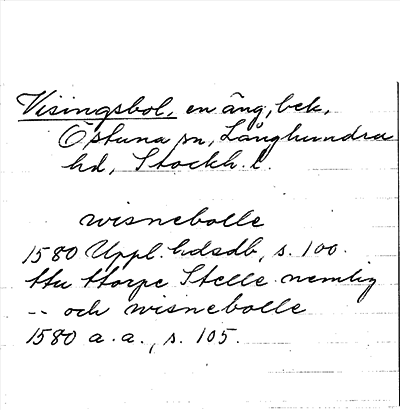 Visingsbol, en äng, bek.
Östuna sn, Långhundra
hd, Stockh. l.
wisnebolle
1580 Uppl. hdsdb, s. 100.
ttu thorpe Stelle nemlig
-- och wisnebolle
1580 a.a., s. 105.